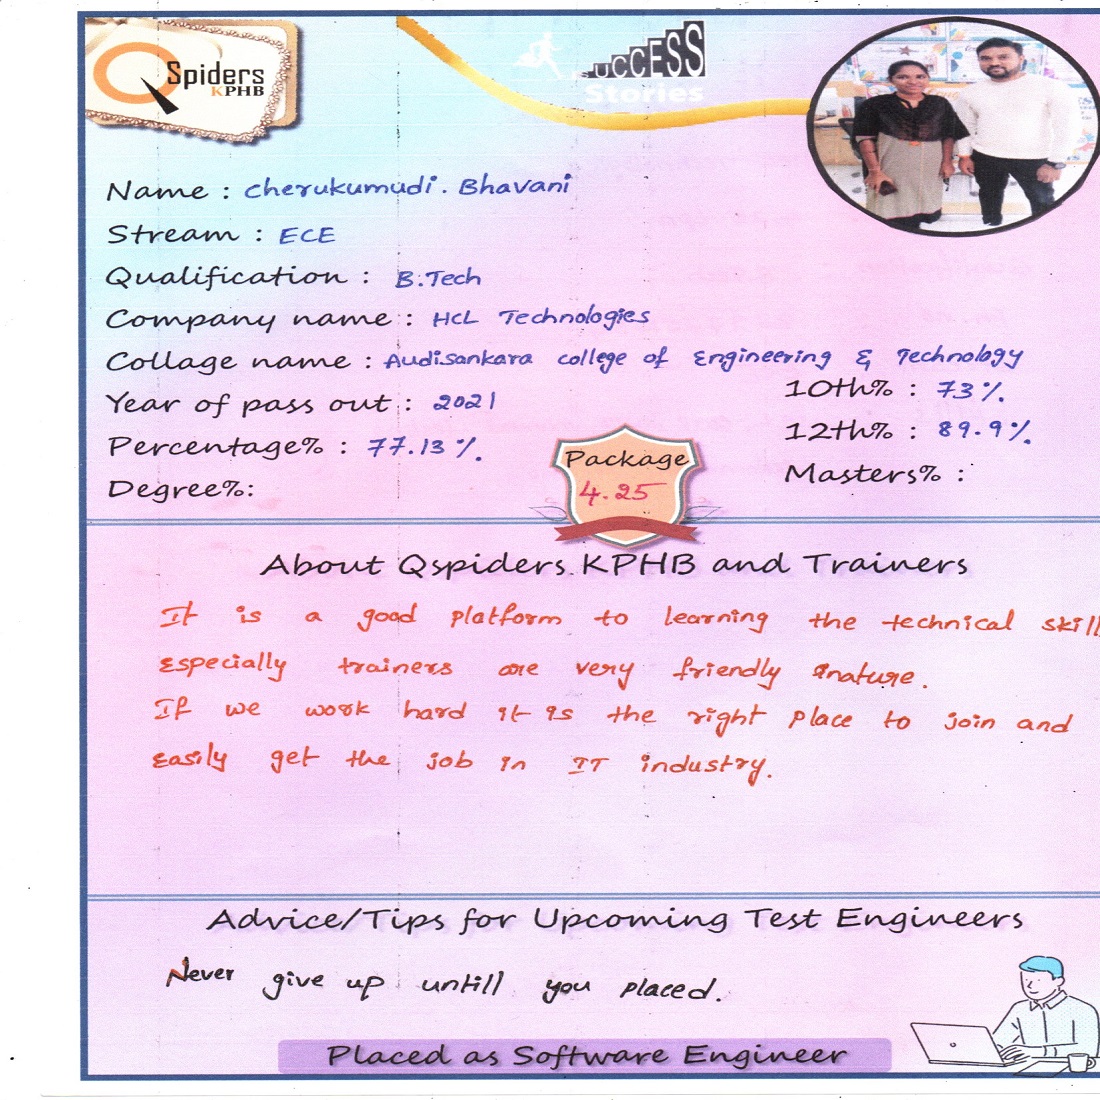 QSpiders
KPHB
SUCCESS
Stories
Name : Cherukumudi. Bhavani
Stream : ECE
Qualification : B.Tech
Company name : HCL Technologies
Collage name : Audisankara college of Engineering & Technology
Year of pass out : 2021
10th% : 73%.
Percentage% : 77.13%.
12th% : 89.9%.
Degree%:
Masters% :
Package
4.25
About Qspiders KPHB and Trainers
It is a good platform to learning the technical skill
Especially trainers are very friendly nature.
If we work hard it is the right place to join and
easily get the job in IT industry.
Advice/Tips for Upcoming Test Engineers
Never give up untill you placed.
Placed as Software Engineer